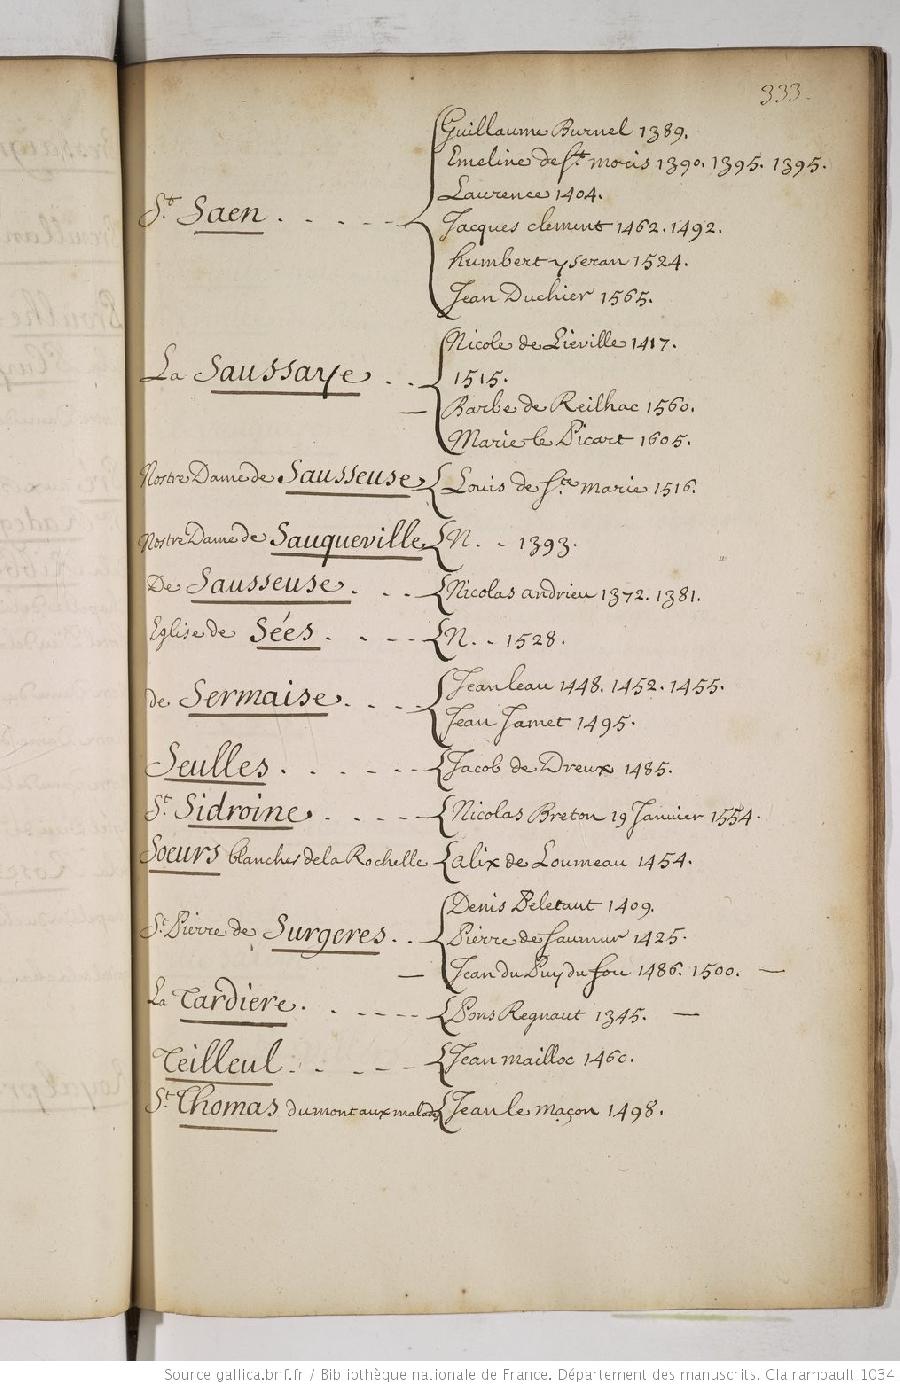 333.
Guillaume Burnel 1389.
Emeline de St. mocis 1390. 1395. 1395.
Laurence 1404.
St. Saen
Jacques clement 1462. 1492.
humbert yseran 1524.
Jean Duchier 1565.
Nicole de Lieville 1417.
La Saussaye
1515.
Barbe de Reilhac 1560.
Marie le Picart 1605.
Nostre Dame de Sausseuse Louis de Ste. marie 1516.
Nostre Dame de Sauqueville N. 1393.
De Sausseuse Nicolas andrieu 1372. 1381.
Eglise de Sées N. 1528.
de Sermaise
Jean leau 1448. 1452. 1455.
Jean Jamet 1495.
Seulles Jacob de Dreux 1485.
St. Sidroine Nicolas Breton 19 Janvier 1554.
Soeurs blanches de la Rochelle alix de Loumeau 1454.
Denis Peletaut 1409.
St. Pierre de Surgeres
Pierre de saumur 1425.
Jean du Puy du fou 1486. 1500.
La Tardiere Pons Regnaut 1345.
Teilleul Jean mailloc 1460.
St. Thomas du mont aux malades Jean le maçon 1498.
Source gallica.bnf.fr / Bibliothèque nationale de France. Département des manuscrits. Clairambault 1034